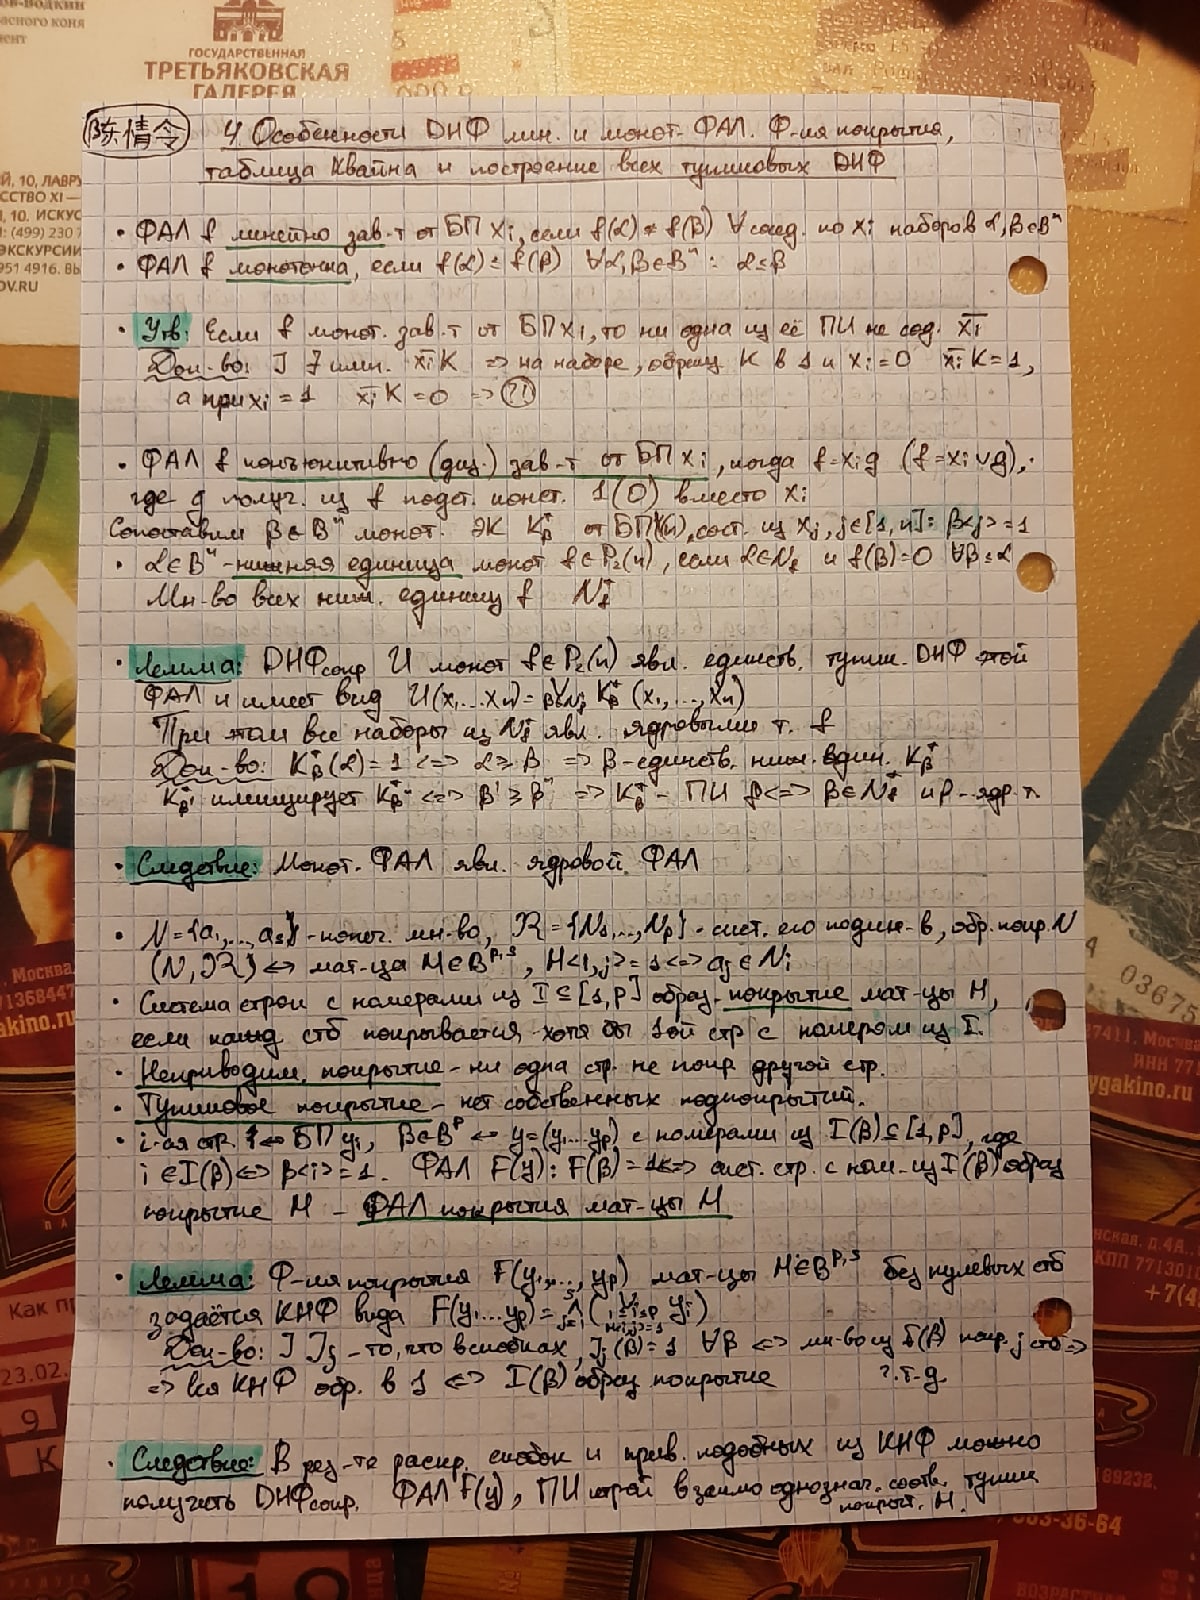 ОВ-ВОДКИН
расного коня
мент
ГОСУДАРСТВЕННАЯ
ТРЕТЬЯКОВСКАЯ
ГАЛЕРЕЯ
陈情令
4 Особенности ДНФ лин. и монот. ФАЛ. Ф-ия покрытия,
таблица Квайна и построение всех тупиковых ДНФ
Й, 10, ЛАВРУ
ССТВО XI —
, 10. ИСКУС
: (499) 230 7
ЭКСКУРСИИ
951 4916. Вы
OV.RU
• ФАЛ f линейно зав-т от БП xi, если f(α) ≠ f(β) ∀ сосед. по xi наборов α, β∈Bⁿ
• ФАЛ f монотонна, если f(α) ≤ f(β) ∀α, β∈Bⁿ: α≤β
• Утв: Если f монот. зав-т от БП xi, то ни одна из её ПИ не сод. x̄i
Док-во: ] ∃ имп. x̄i K => на наборе, обращ K в 1 и xi=0 x̄i K=1,
а при xi=1 x̄i K=0 => ?!
• ФАЛ f конъюнктивно (диз.) зав-т от БП xi, когда f=xi g (f=xi∨g),
где g получ. из f подст. конст. 1(0) вместо xi
Сопоставим β∈Bⁿ монот. ЭК K⁺β от БП X(n), сост. из xj, j∈[1,n]: β<j>=1
• α∈Bⁿ - нижняя единица монот f∈P₂(n), если α∈Nf и f(β)=0 ∀β≤α
Мн-во всех ниж. единиц f N⁺f
• Лемма: ДНФсокр U монот f∈P₂(n) явл. единств. тупик. ДНФ этой
ФАЛ и имеет вид U(x₁...xn)= ∨β∈N⁺f K⁺β (x₁,...,xn)
При этом все наборы из N⁺f явл. ядровыми т. f
Док-во: K⁺β(α)=1 <=> α≥β => β-единств. ниж. един. K⁺β
K⁺β' имплицирует K⁺β'' <=> β'≥β'' => K⁺β - ПИ f <=> β∈N⁺f и β-ядр. т.
• Следствие: Монот. ФАЛ явл. ядровой ФАЛ
• N={a₁,...,as} - конеч. мн-во, 𝔑={N₁,...,Np} - сист. его подмн-в, обр. покр. N
(N, 𝔑) <-> мат-ца M∈B^{p,s}, M<i,j>=1 <=> aj∈Ni
• Система строк с номерами из I⊆[1,p] образ. покрытие мат-цы M,
если кажд стб покрывается хотя бы 1ой стр с номером из I.
• Неприводим. покрытие - ни одна стр. не покр. другой стр.
• Тупиковое покрытие - нет собственных подпокрытий.
• i-ая стр. <-> БП yi, β∈B^p <-> y=(y₁...yp) с номерами из I(β)⊆[1,p], где
i∈I(β) <=> β<i>=1. ФАЛ F(y): F(β)=1 <=> сист. стр. с ном-из I(β) образ
покрытие M - ФАЛ покрытия мат-цы M
• Лемма: Ф-ия покрытия F(y₁,...,yp) мат-цы M∈B^{p,s} без нулевых стб
задаётся КНФ вида F(y₁...yp)= ∧ʲ⁼¹ˢ ( ∨ 1≤i≤p M<i,j>=1 yi)
Док-во: ] Jj - то, что в скобках, Jj(β)=1 ∀β <=> мн-во из I(β) покр. j стб =>
=> вся КНФ обр. в 1 <=> I(β) образ покрытие ч.т.д.
• Следствие: В рез-те раскр. скобок и прив. подобных из КНФ можно
получить ДНФсокр. ФАЛ F(y), ПИ которой взаимо однознач. соотв. тупик
покрыт. M.
. Москва
71368447
akino.ru
Как пр
23.02.
9
К
А 03675
27411, Москва
ИНН 77
ygakino.ru
нская, д.4А.,
КПП 771301
+7(4
189232,
603-36-64
ВОЗРАСТНА